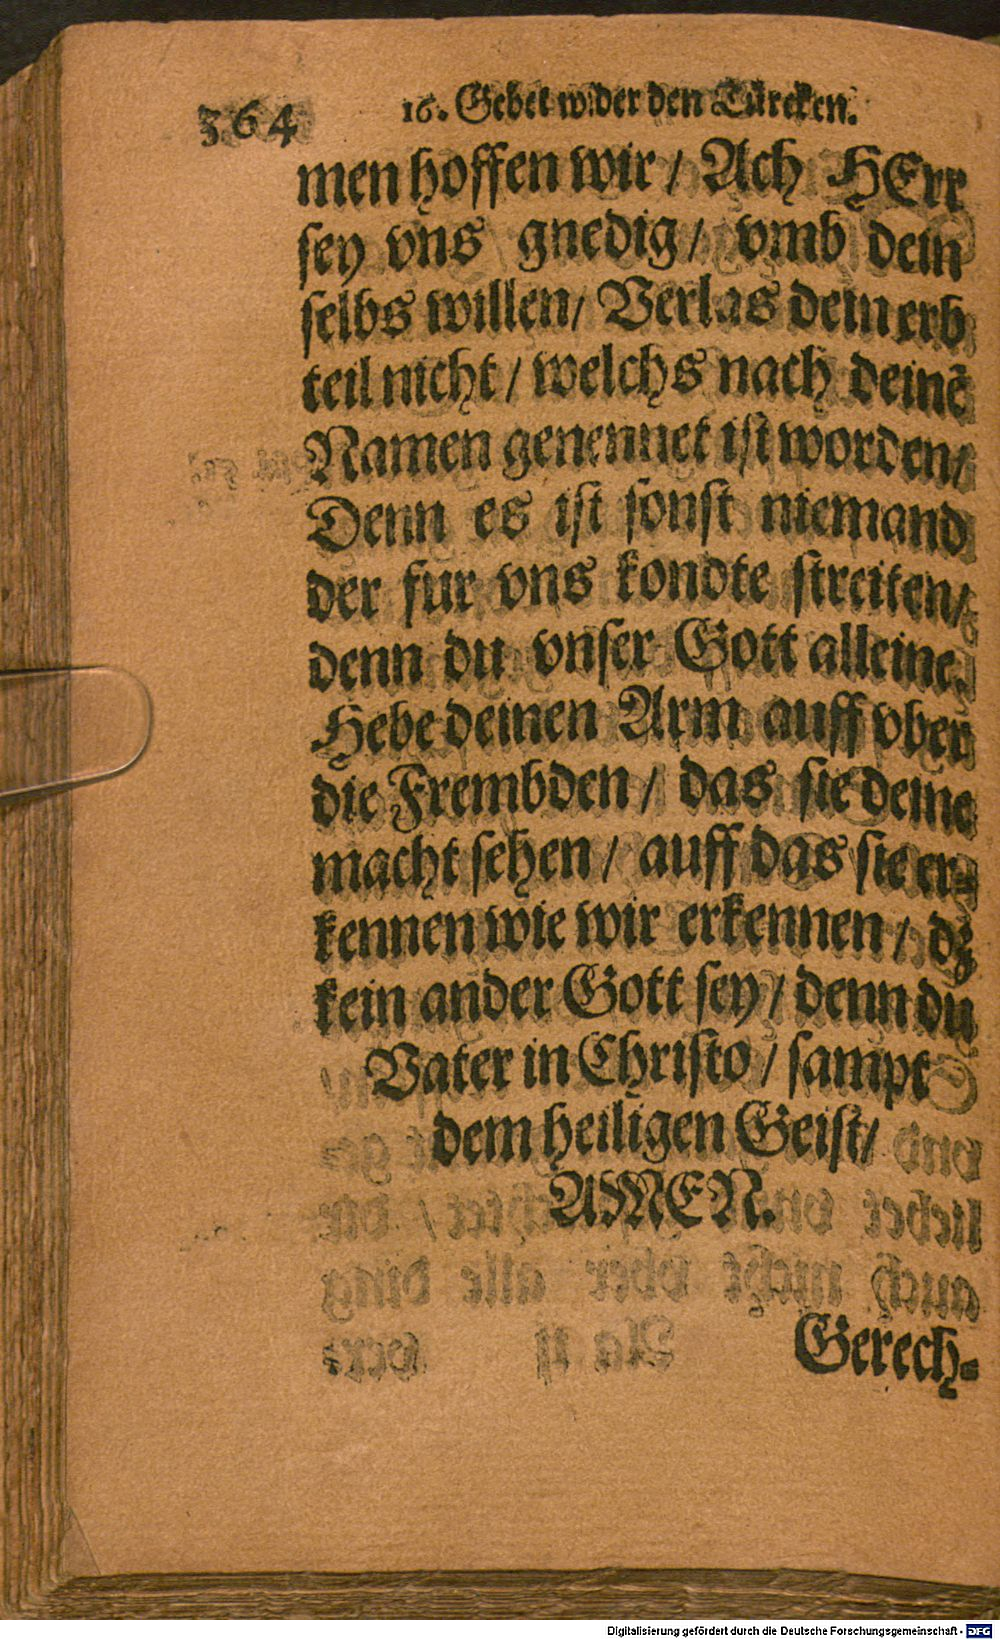 364
16. Gebet wider den Türcken.
men hoffen wir / Ach HErr
sey vns gnedig / vmb dein
selbs willen / Verlas dein erb
teil nicht / welchs nach deinē
Namen genennet ist worden /
Denn es ist sonst niemand
der fur vns kondte streiten /
denn du vnser Gott alleine.
Hebe deinen Arm auff vber
die Frembden / das sie deine
macht sehen / auff das sie er-
kennen wie wir erkennen / dz
kein ander Gott sey / denn du
Vater in Christo / sampt
dem heiligen Geist /
AMEN.
Gerech-
Digitalisierung gefördert durch die Deutsche Forschungsgemeinschaft - DFG